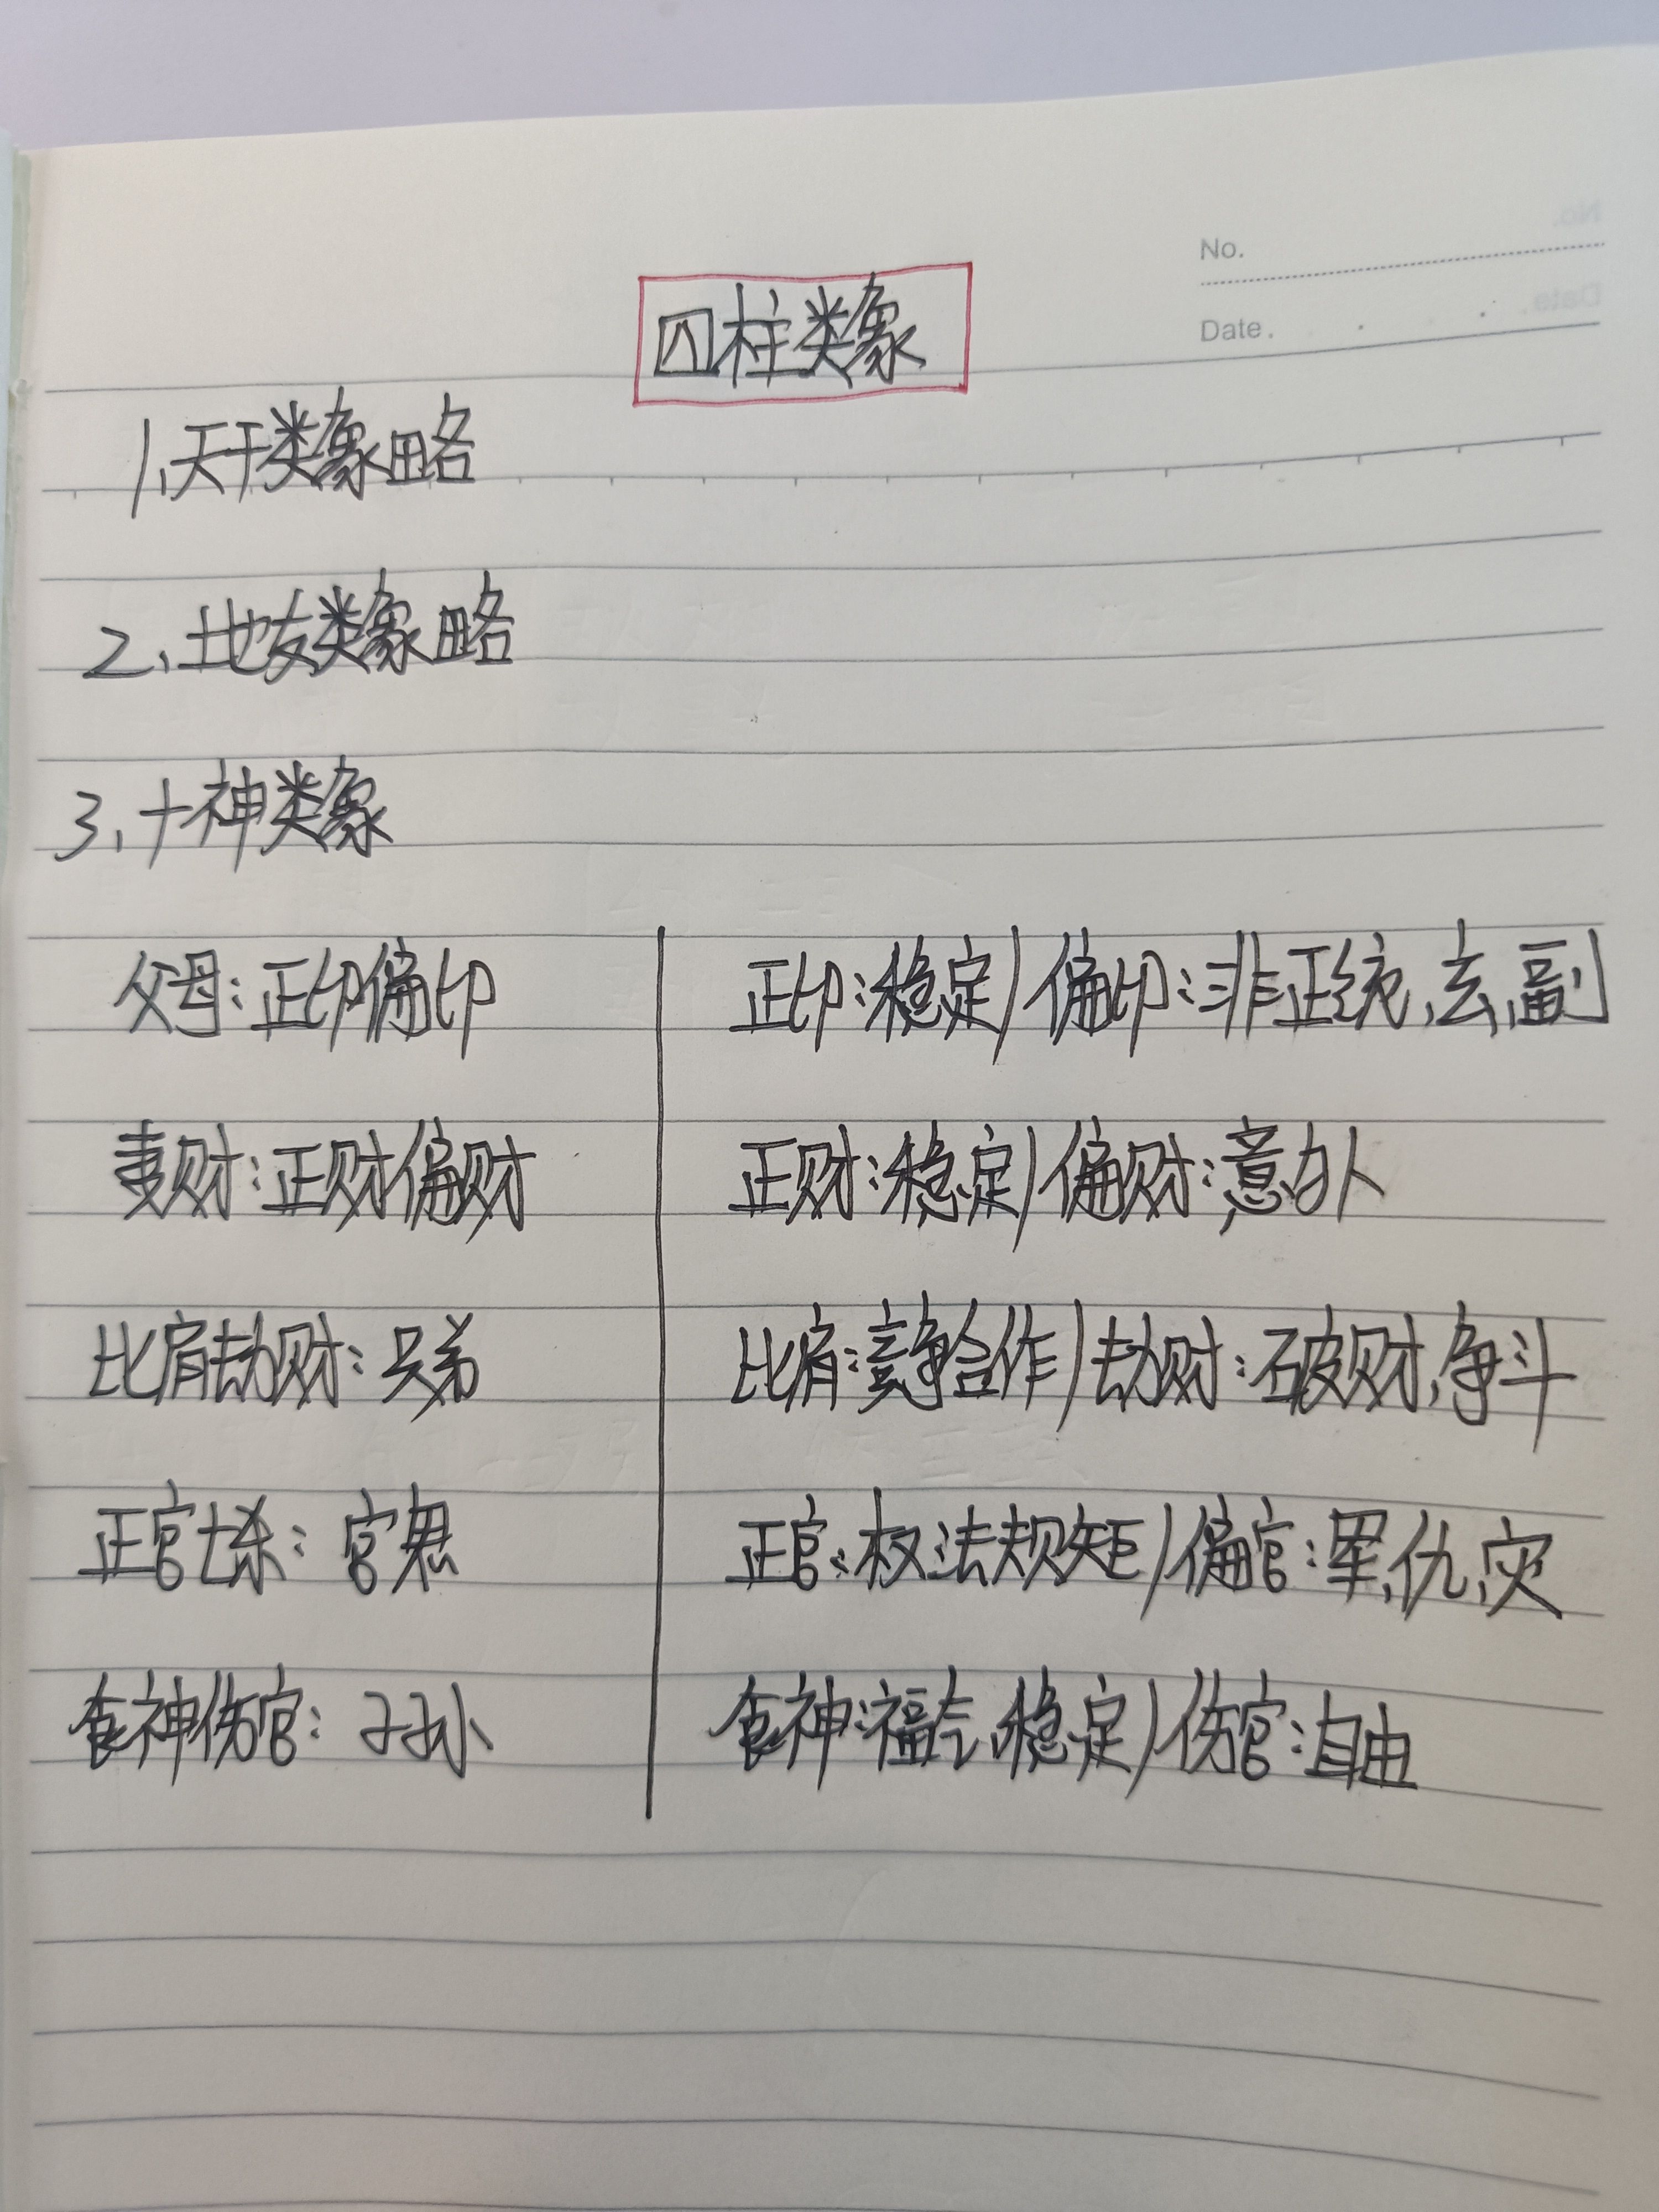 No.
Date.
四柱类象
1、天干类象略
2、地支类象略
3、十神类象
父母：正印偏印
正印：稳定/偏印：非正统、玄、副
妻财：正财偏财
正财：稳定/偏财：意外
比肩劫财：兄弟
比肩：竞争合作/劫财：破财、争斗
正官七杀：官鬼
正官：权法规矩/偏官：军、仇、灾
食神伤官：子孙
食神：福气、稳定/伤官：自由